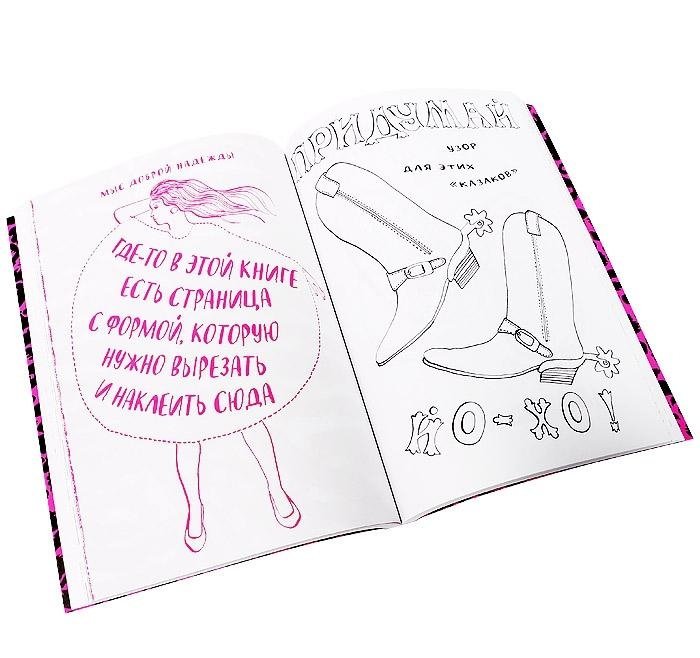 МЫС ДОБРОЙ НАДЕЖДЫ
ГДЕ-ТО В ЭТОЙ КНИГЕ
ЕСТЬ СТРАНИЦА
С ФОРМОЙ, КОТОРУЮ
НУЖНО ВЫРЕЗАТЬ
И НАКЛЕИТЬ СЮДА
ПРИДУМАЙ
УЗОР
ДЛЯ ЭТИХ
«КАЗАКОВ»
ЙО-ХО!